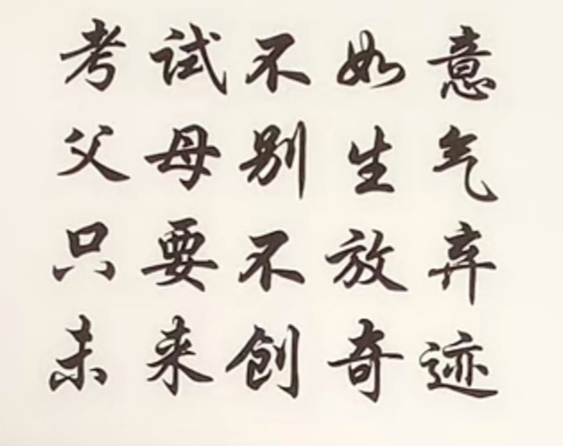 考试不如意
父母别生气
只要不放弃
未来创奇迹